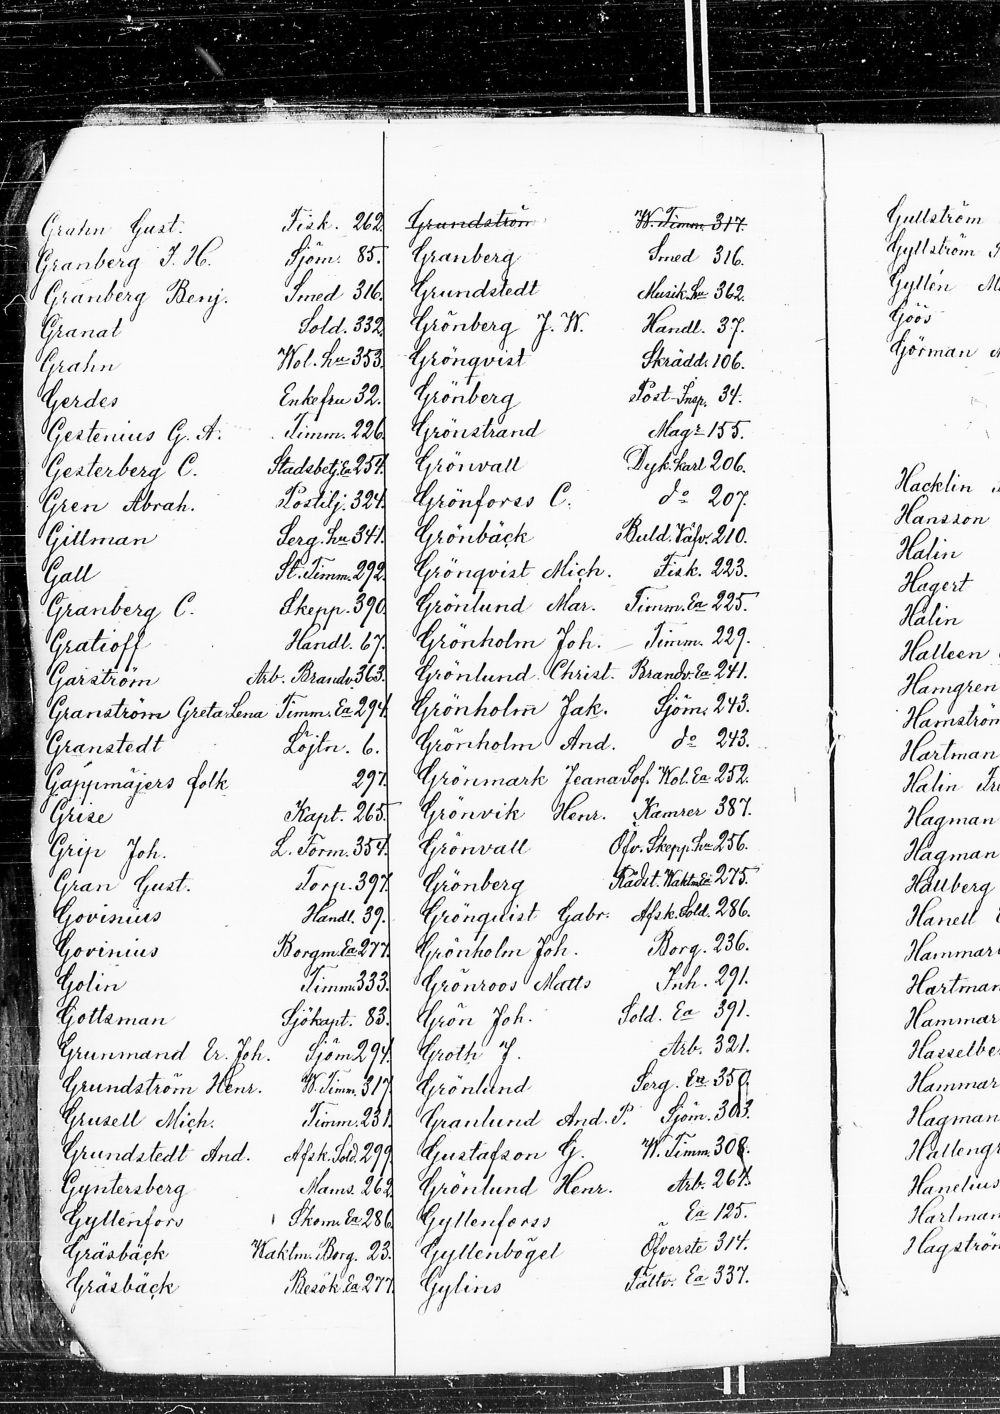 Grahn Gust. Fisk. 262.
Granberg J. H. Sjöm. 85.
Granberg Benj. Smed 316.
Granat Sold. 332.
Grahn Wol. hu 353.
Gerdes Enkefru 32.
Gestenius G. A. Timm. 226.
Gesterberg C. Stadsbetj. Ea 254.
Gren Abrah. Postilj. 324.
Gillman Serg. hu 341.
Gall St. Timm. 292.
Granberg C. Skepp. 390.
Gratioff Handl. 67.
Garström Arb. Brandv. 363.
Granström Greta Lena Timm. Ea 294.
Granstedt Löjtn. 6.
Gappmajers folk 297.
Grise Kapt. 265.
Grip Joh. L. Form. 354.
Gran Gust. Torp. 397.
Govinius Handl. 39.
Govinius Borgm. Ea 277.
Golin Timm. 333.
Gottsman Sjökapt. 83.
Grunmand Er. Joh. Sjöm. 294.
Grundström Henr. W. Timm. 317.
Grusell Mich. Timm. 231.
Grundstedt And. Afsk. Sold. 299.
Gyntersberg Mams. 262.
Gyllenfors Skom. Ea 286.
Gräsbäck Waktm. Borg. 23.
Gräsbäck Besök. Ea 277.
Grundström W. Timm. 317.
Granberg Smed 316.
Grundstedt Musik. hu 362.
Grönberg J. W. Handl. 37.
Grönqvist Skrädd. 106.
Grönberg Post-Insp. 34.
Grönstrand Magr 155.
Grönvall Dyk. karl 206.
Grönforss C. do 207.
Grönbäck Buld. Väfv. 210.
Grönqvist Mich. Fisk. 223.
Grönlund Mar. Timm. Ea 225.
Grönholm Joh. Timm. 229.
Grönlund Christ. Brandv. Ea 241.
Grönholm Jak. Sjöm. 243.
Grönholm And. do 243.
Grönmark Jeana Sof. Wol. Ea 252.
Grönvik Henr. Kamrer 387.
Grönvall Öfv. Skepp. hu 256.
Grönberg Rådst. Waktm Ea 275.
Grönquist Gabr. Afsk. Sold. 286.
Grönholm Joh. Borg. 236.
Grönroos Matts Inh. 291.
Grön Joh. Sold. Ea 391.
Groth J. Arb. 321.
Grönlund Serg. Ea 350.
Granlund And. P. Sjöm. 303.
Gustafson G. W. Timm. 308.
Grönlund Henr. Arb. 267.
Gyllenforss Ea 125.
Gyllenbögel Öfverste 314.
Gylins Fältv. Ea 337.
Gullström
Gyllström
Gyllén
Göös
Görman
Hacklin
Hansson
Halin
Hagert
Halin
Halleen
Hamgren
Hamström
Hartman
Halin
Hagman
Hagman
Hällberg
Hanell
Hammar
Hartman
Hammar
Hasselbe
Hammar
Hagman
Hallengr
Hanelius
Hartman
Hagström